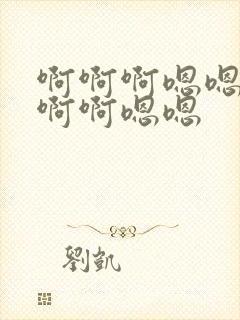 啊啊啊嗯嗯
啊啊嗯嗯
劉凱